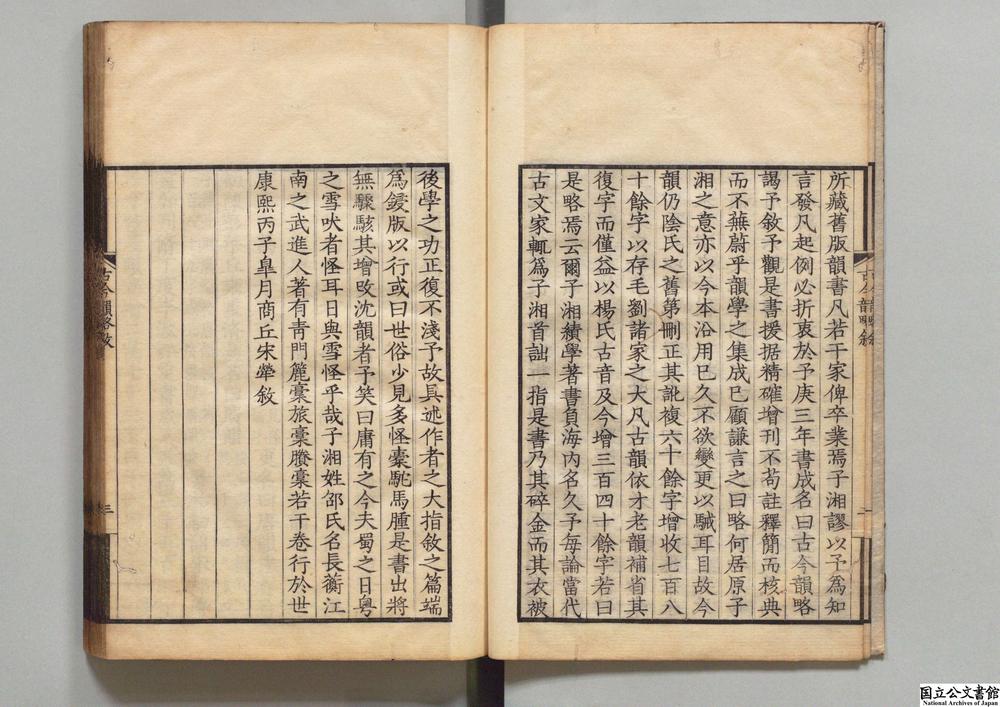 所藏舊版韻書凡若干家俾卒業焉子湘謬以予為知
言發凡起例必折衷於予庚三年書成名曰古今韻略
謁予敘予觀是書援据精確增刊不苟註釋簡而核典
而不蕪蔚乎韻學之集成已顧謙言之曰略何居原子
湘之意亦以今本沿用已久不欲變更以駴耳目故今
韻仍陰氏之舊第刪正其訛複六十餘字增收七百八
十餘字以存毛劉諸家之大凡古韻依才老韻補省其
復字而僅益以楊氏古音及今增三百四十餘字若曰
是略焉云爾子湘績學著書負海內名久予每論當代
古文家輒為子湘首詘一指是書乃其碎金而其衣被
古今韻略敘
二
後學之功正復不淺予故具述作者之大指敘之篇端
為鋟版以行或曰世俗少見多怪槖駝馬腫是書出將
無驟駭其增改沈韻者予笑曰庸有之今夫蜀之日粵
之雪吠者怪耳日與雪怪乎哉子湘姓邵氏名長蘅江
南之武進人著有青門簏槀旅槀賸槀若干卷行於世
康熙丙子皐月商丘宋犖敘
古今韻略敘
三
国立公文書館
National Archives of Japan